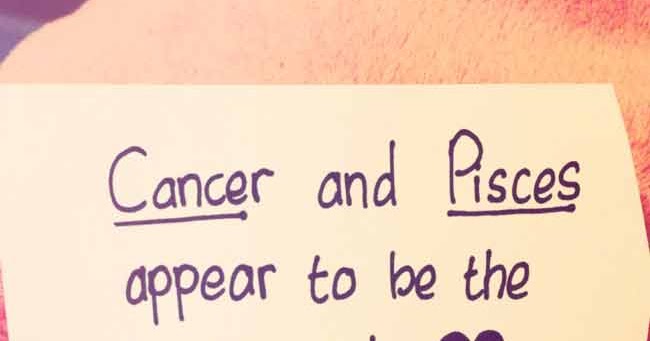 Cancer and Pisces
appear to be the